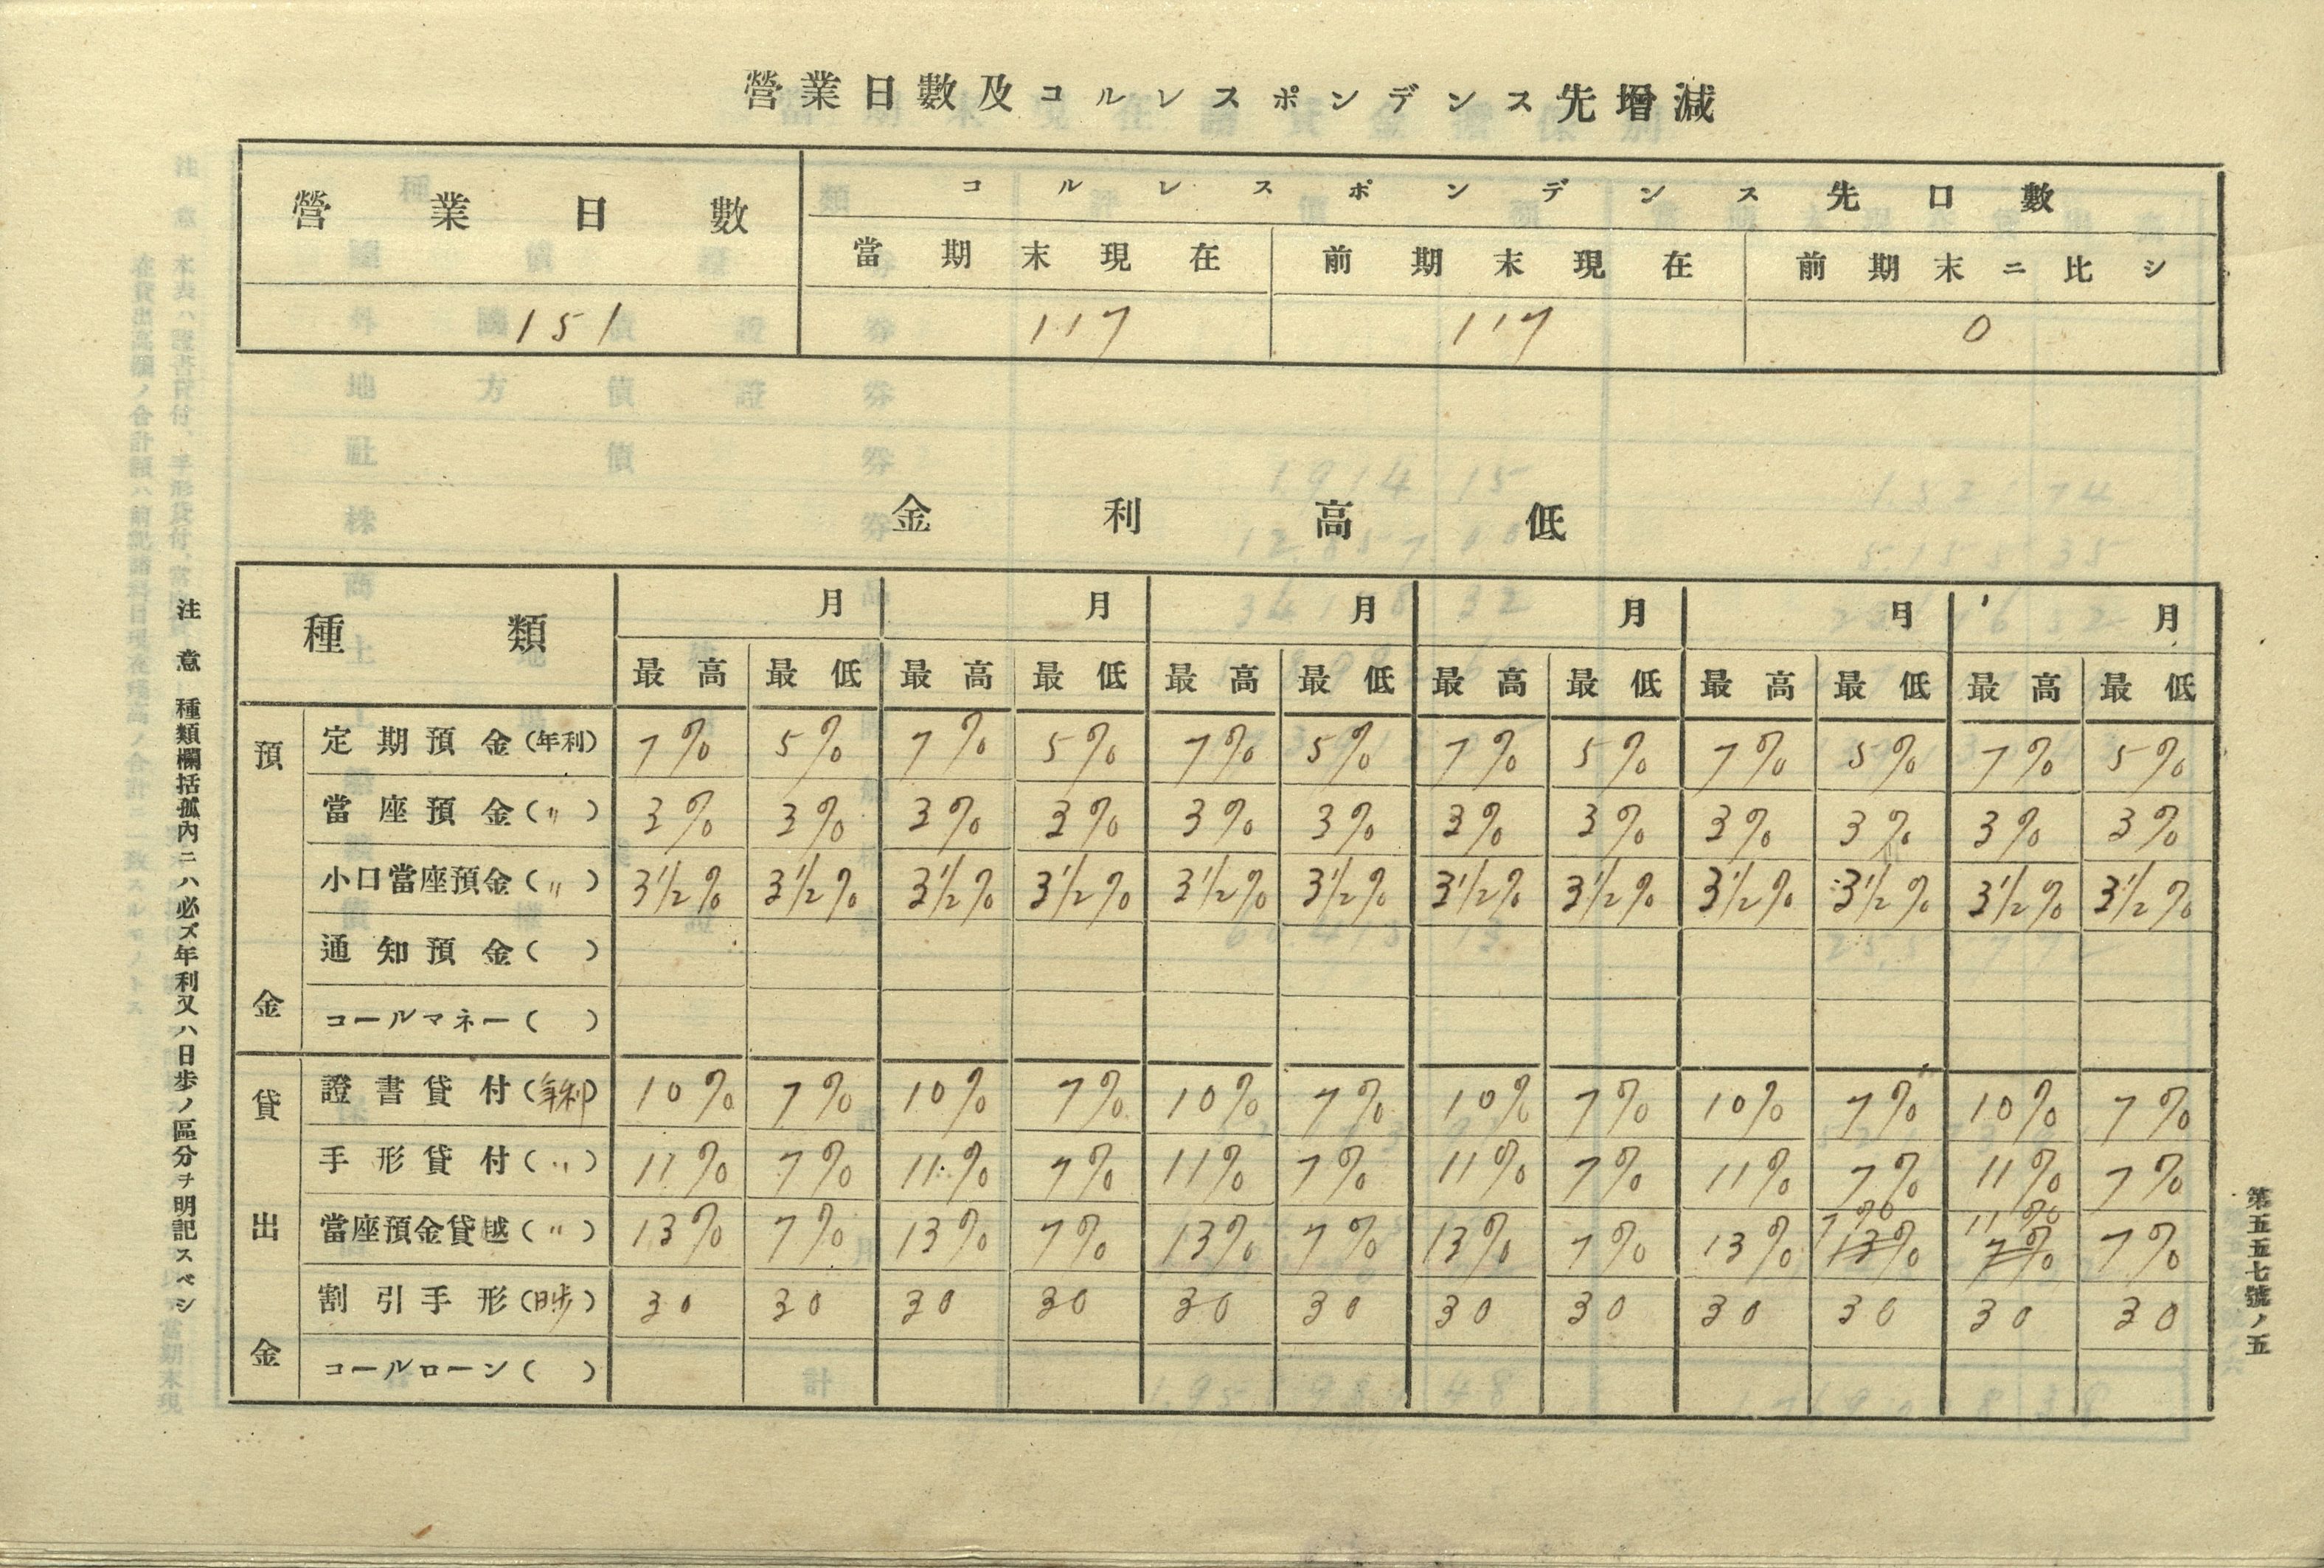 營業日數及コルレスポンデンス先增減
營業日數
コルレスポンデンス先口數
當期末現在 前期末現在 前期末ニ比シ
151 117 117 0
金利高低
種類 月 月 月 月 月 月
最高 最低 最高 最低 最高 最低 最高 最低 最高 最低 最高 最低
預金
定期預金(年利) 7% 5% 7% 5% 7% 5% 7% 5% 7% 5% 7% 5%
當座預金(〃) 3% 3% 3% 3% 3% 3% 3% 3% 3% 3% 3% 3%
小口當座預金(〃) 3½% 3½% 3½% 3½% 3½% 3½% 3½% 3½% 3½% 3½% 3½% 3½%
通知預金( )
コールマネー( )
貸出金
證書貸付(年利) 10% 7% 10% 7% 10% 7% 10% 7% 10% 7% 10% 7%
手形貸付(〃) 11% 7% 11% 7% 11% 7% 11% 7% 11% 7% 11% 7%
當座預金貸越(〃) 13% 7% 13% 7% 13% 7% 13% 7% 13% 7% 13% 11% 7% 7%
割引手形(日步) 30 30 30 30 30 30 30 30 30 30 30 30
コールローン( )
注意 種類欄括孤內ニハ必ズ年利又ハ日步ノ區分ヲ明記スベシ
第五五五七號ノ五